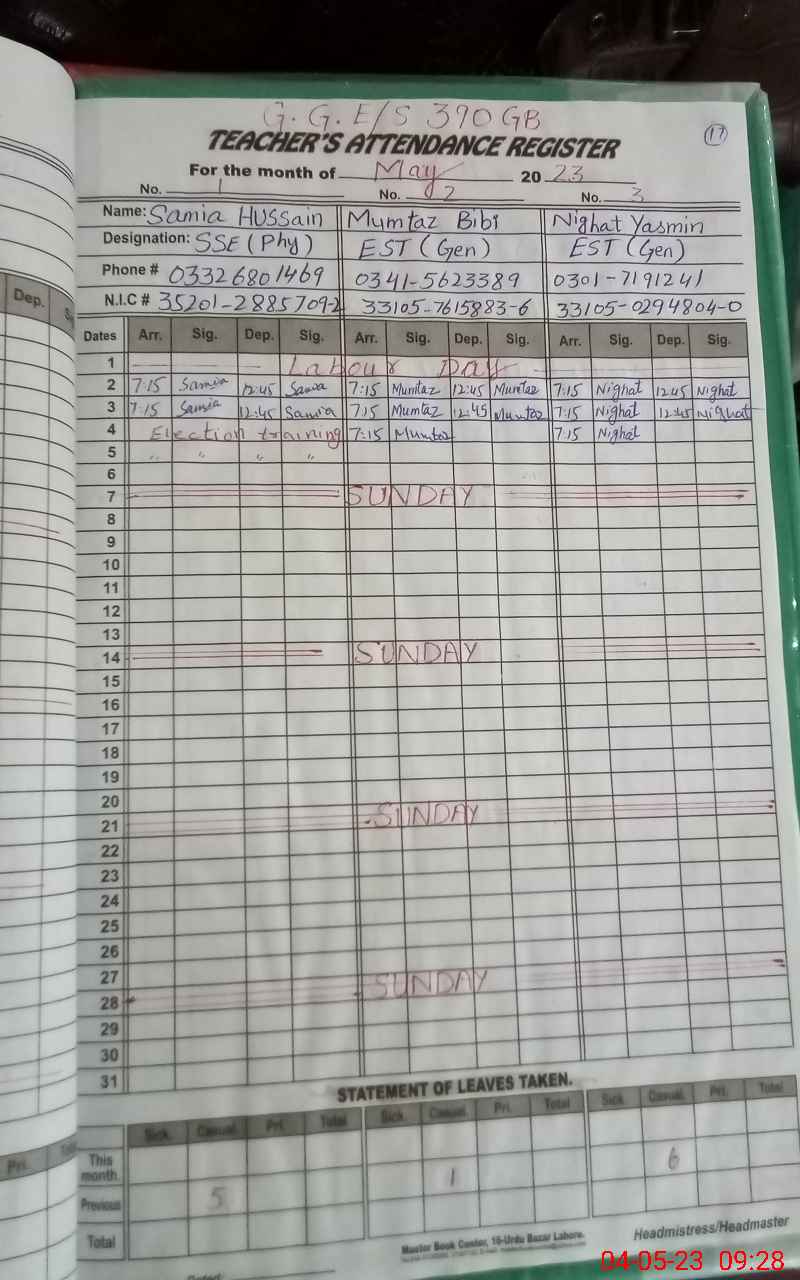 G. G. E/S 390 GB
TEACHER'S ATTENDANCE REGISTER
17
For the month of May 2023
No. 1 No. 2 No. 3
Name: Samia Hussain Mumtaz Bibi Nighat Yasmin
Designation: SSE (Phy) EST (Gen) EST (Gen)
Phone # 03326801469 0341-5623389 0301-7191241
N.I.C # 35201-2885709-2 33105-7615883-6 33105-0294804-0
Dates Arr. Sig. Dep. Sig. Arr. Sig. Dep. Sig. Arr. Sig. Dep. Sig.
1 Labour Day
2 7:15 Samia 12:45 Samia 7:15 Mumtaz 12:45 Mumtaz 7:15 Nighat 12:45 Nighat
3 7:15 Samia 12:45 Samia 7:15 Mumtaz 12:45 Mumtaz 7:15 Nighat 12:45 Nighat
4 Election training 7:15 Mumtaz 7:15 Nighat
5 " " " "
6
7 SUNDAY
8
9
10
11
12
13
14 SUNDAY
15
16
17
18
19
20
21 SUNDAY
22
23
24
25
26
27
28 SUNDAY
29
30
31
STATEMENT OF LEAVES TAKEN.
Sick. Casual. Pri. Total Sick. Casual. Pri. Total Sick. Casual. Pri. Total
This month
Previous 5 1 6
Total
Master Book Center, 16-Urdu Bazar Lahore.
Headmistress/Headmaster
04-05-23 09:28
Dep.
Pri.